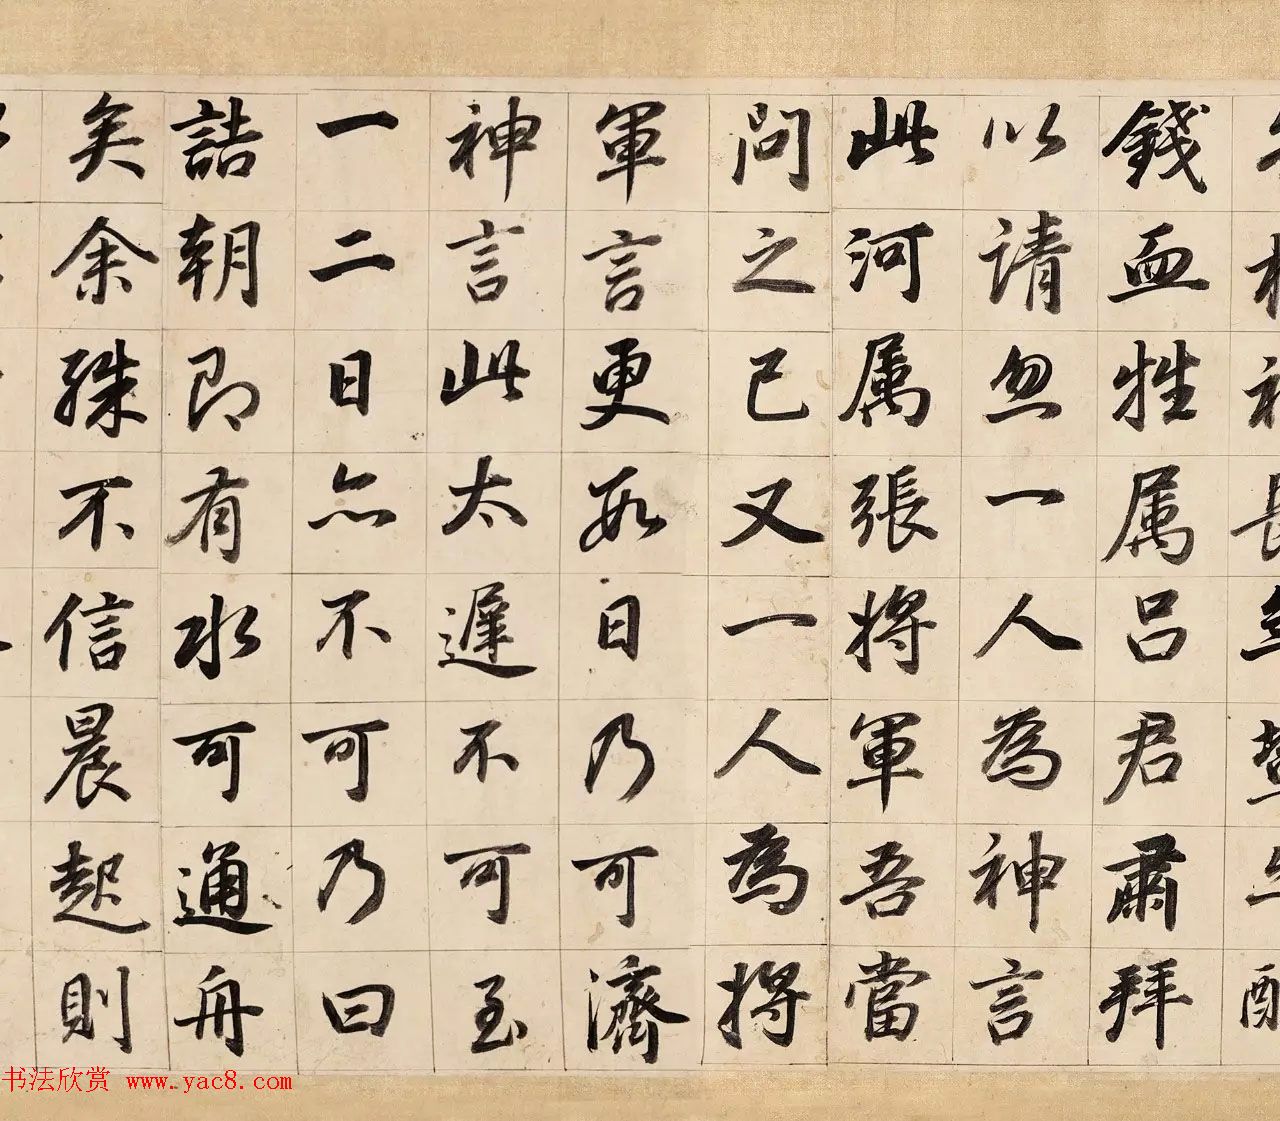 錢血牲属吕君肅拜
以请忽一人為神言
此河属張将軍吾當
问之已又一人為将
軍言更日乃可濟
神言此太遲不可至
一二日亦不可乃曰
詰朝即有水可通舟
矣余殊不信晨起則
书法欣赏 www.yac8.com